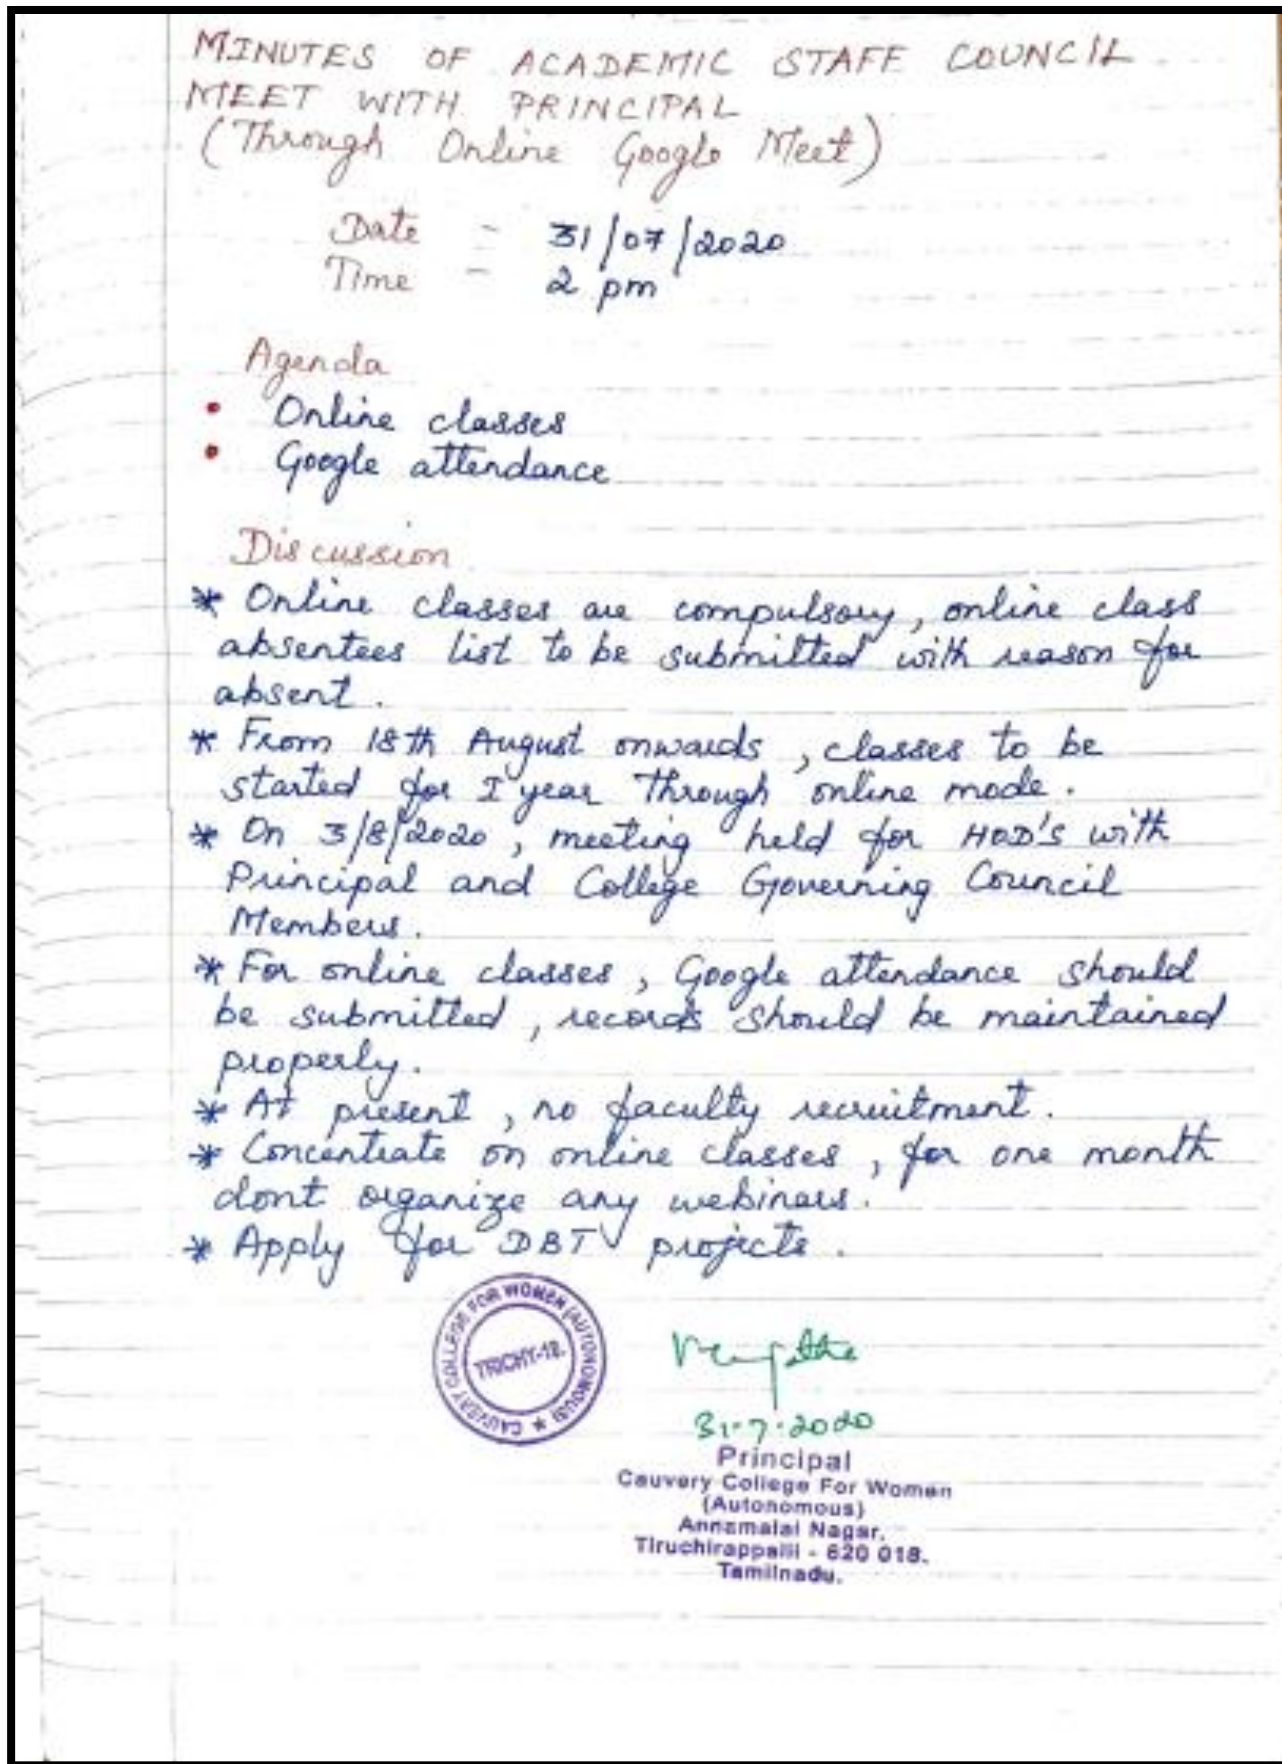 MINUTES OF ACADEMIC STAFF COUNCIL
MEET WITH PRINCIPAL
(Through Online Google Meet)
Date - 31/07/2020
Time - 2 pm
Agenda
• Online classes
• Google attendance
Discussion
* Online classes are compulsory, online class
absentees list to be submitted with reason for
absent.
* From 18th August onwards, classes to be
started for I year through online mode.
* On 3/8/2020, meeting held for HOD's with
Principal and College Governing Council
Members.
* For online classes, Google attendance should
be submitted, records should be maintained
properly.
* At present, no faculty recruitment.
* Concentrate on online classes, for one month
dont organize any webinars.
* Apply for DBT projects.
CAUVERY COLLEGE FOR WOMEN (AUTONOMOUS) ★
TRICHY-18.
31-7-2020
Principal
Cauvery College For Women
(Autonomous)
Annamalai Nagar,
Tiruchirappalli - 620 018.
Tamilnadu.